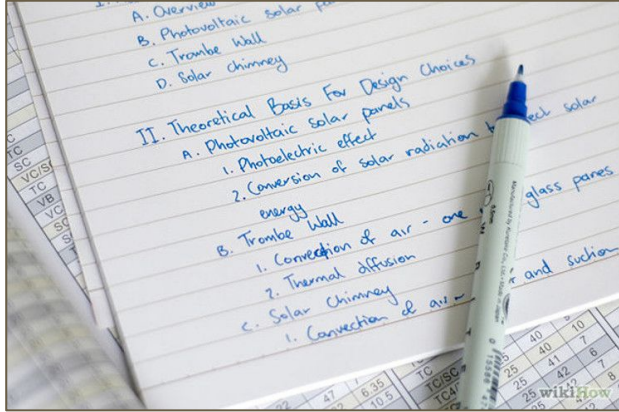 A. Overview
B. Photovoltaic solar
C. Trombe Wall
D. Solar chimney
II. Theoretical Basis For Design Choices
A. Photovoltaic solar panels
1. Photoelectric effect
2. Conversion of solar radiation solar
energy
B. Trombe Wall
1. Convection of air - one glass panes
2. Thermal diffusion
C. Solar Chimney
1. Convection of air - and suction
TC
TC
VC/SC
TC
VB
VC
SC
40 10
25 40
25 41 7
25 42 6
47 6.35
TC/SC
TC
wikiHow